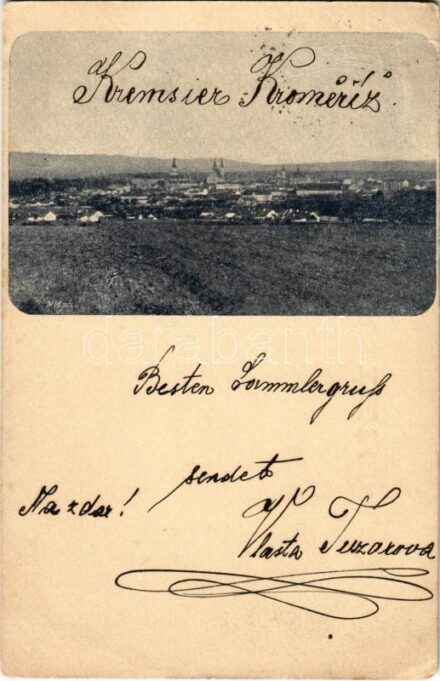 Kremsier Kroměříž
darabanth
Besten Sammlergruss
sendet
Na zdar!
Vlasta Tuzarova